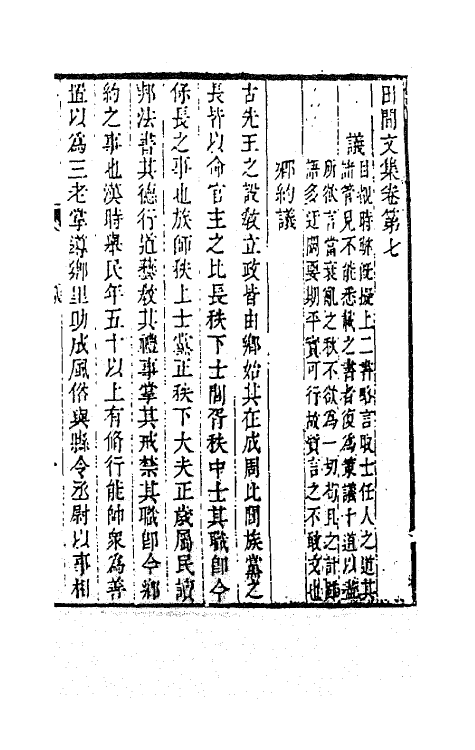 田間文集卷第七
議
目擊時艱旣擬上二書略言取士任人之道其
諸管見不能悉載之書者復為彙議十道以盡
所欲言當衰亂之秋不欲為一切苟且之計節
語多迂闊要期平實可行故質言之不敢文也
鄉約議
古先王之設敎立政皆由鄉始其在成周比閭族黨之
長皆以命官主之比長秩下士閭胥秩中士其職即今
保長之事也族師秩上士黨正秩下大夫正歲屬民讀
邦法書其德行道藝敎其禮事掌其戒禁其職即今鄉
約之事也漢時舉民年五十以上有脩行能帥衆為善
置以為三老掌導鄉里助成風俗與縣令丞尉以事相